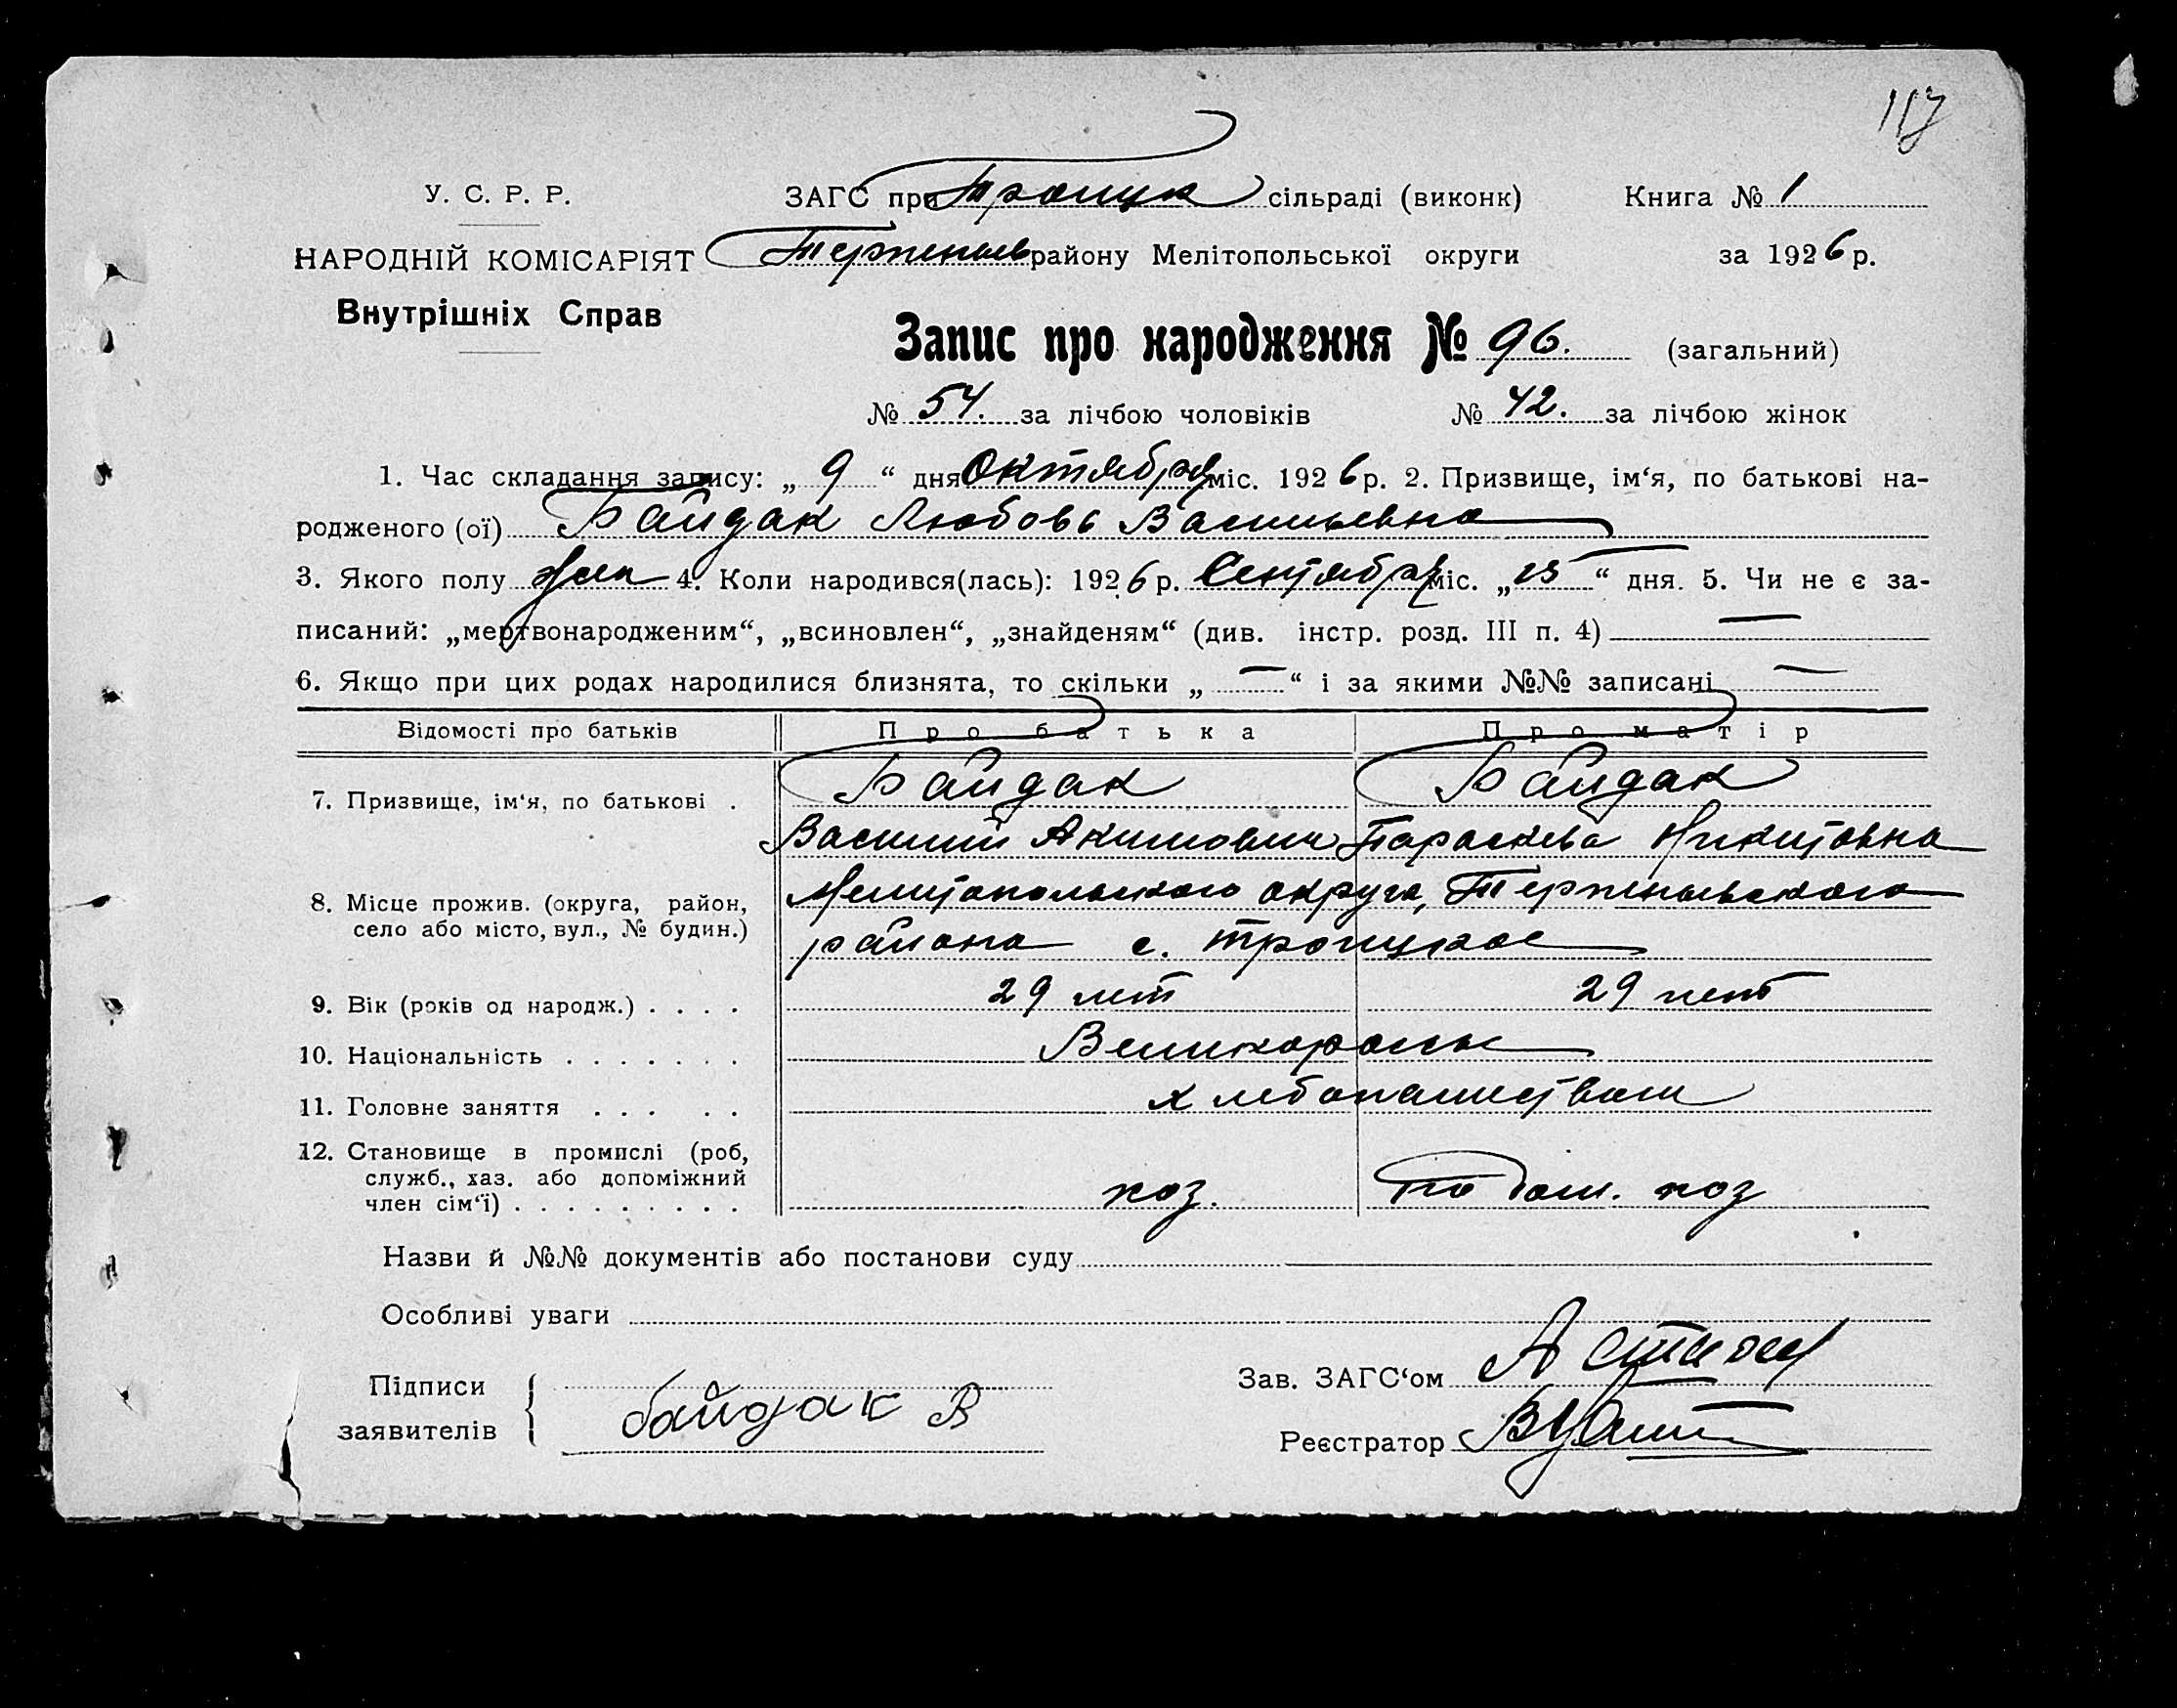 117
У. С. Р. Р.
ЗАГС при Троицк сільраді (виконк) Книга № 1
НАРОДНІЙ КОМІСАРІЯТ Терпеньев району Мелітопольської округи за 1926 р.
Внутрішніх Справ
Запис про народження № 96. (загальний)
№ 54. за лічбою чоловіків № 42. за лічбою жінок
1. Час складання запису: „ 9 “ дня Октября міс. 1926 р. 2. Призвище, ім‘я, по батькові на-
родженого (ої) Байдак Любовь Васильевна
3. Якого полу жен 4. Коли народився(лась): 1926 р. Сентября міс. „ 25 “ дня. 5. Чи не є за-
писаний: „мертвонародженим“, „всиновлен“, „знайденям“ (див. інстр. розд. III п. 4) —
6. Якщо при цих родах народилися близнята, то скільки „ — “ і за якими №№ записані —
Відомості про батьків Про батька Про матір
7. Призвище, ім‘я, по батькові . Байдак Байдак
Василий Акимович Параскева Никитовна
8. Місце прожив. (округа, район, Мелитопольского округа, Терпеньевского
село або місто, вул., № будин.) района с. Троицкое
9. Вік (років од народж.) . . . . 29 лет 29 лет
10. Національність . . . . . . . Великороссы
11. Головне заняття . . . . . хлебопашеством
12. Становище в промислі (роб,
служб., хаз. або допоміжний
член сім‘ї) . . . . . . . . . хоз. по дом. хоз
Назви й №№ документів або постанови суду
Особливі уваги
Підписи
Зав. ЗАГС‘ом
заявителів байдак В
Реєстратор